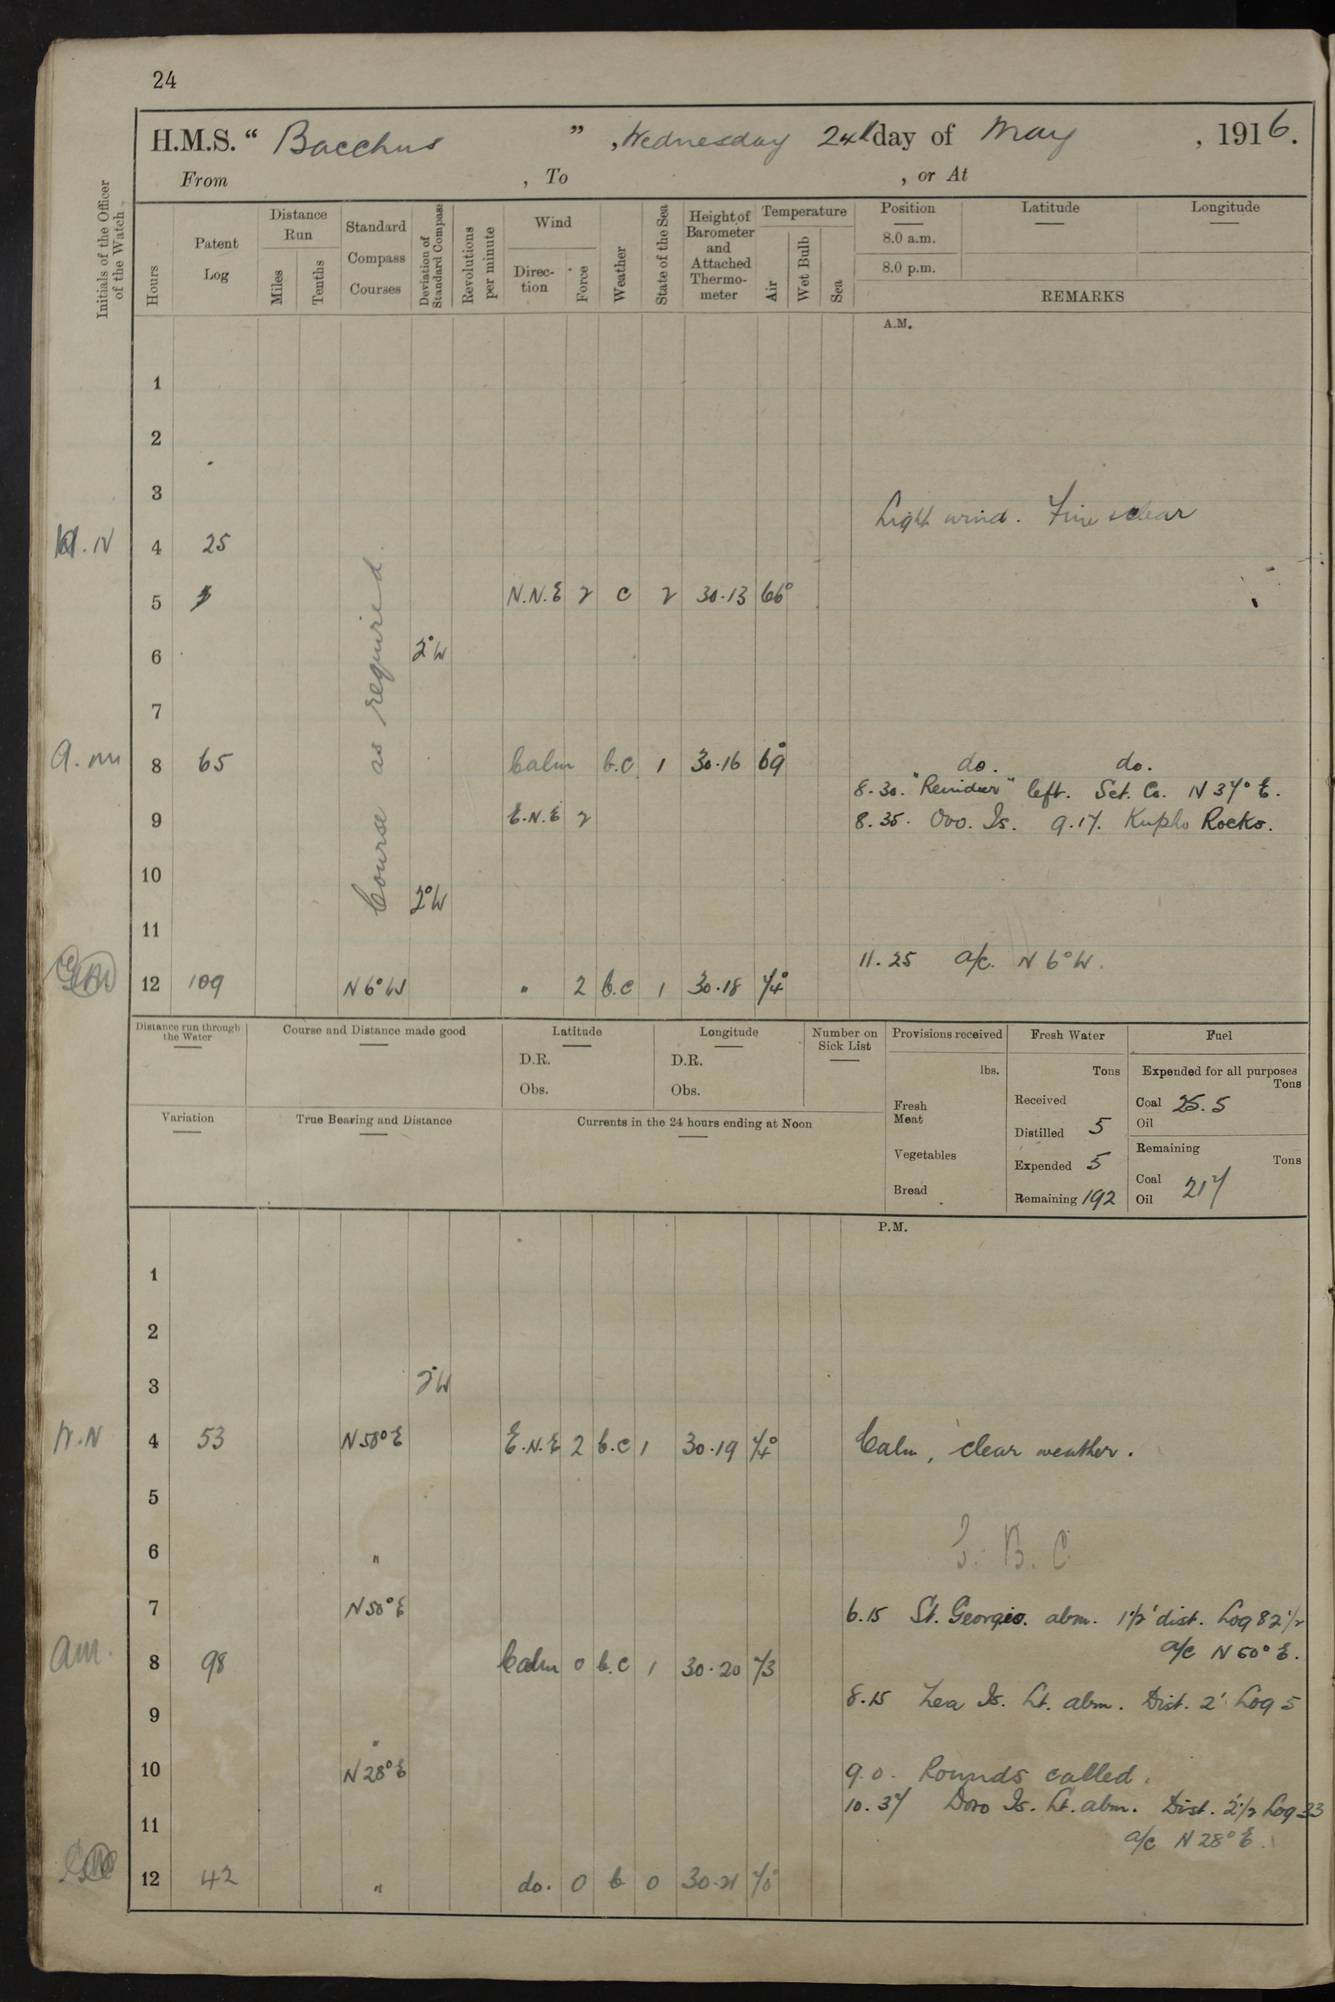 24
H.M.S. " Bacchus ", Wednesday 24th day of May, 1916.
From , To , or At
Initials of the Officer of the Watch
Hours
Patent Log
Distance Run
Miles
Tenths
Standard Compass Courses
Deviation of Standard Compass
Revolutions per minute
Wind
Direction
Force
Weather
State of the Sea
Height of Barometer and Attached Thermometer
Temperature
Air
Wet Bulb
Sea
Position
8.0 a.m.
8.0 p.m.
Latitude
Longitude
REMARKS
A.M.
1
2
3
Light wind. Fine & clear
.N 4 25
Course as required
5 N.N.E 2 c 2 30.13 66°
6 2°W
7
a.m 8 65 Calm b.c 1 30.16 69° do. do.
8.30. "Reindeer" left. Set. Co. N 37° E.
9 E.N.E 2 8.35. Ovo. Is. 9.17. Kupho Rocks.
10
2°W
11
11.25 a/c. N 6° W.
12 109 N 6° W " 2 b.c 1 30.18 74°
Distance run through the Water
Course and Distance made good
Latitude
D.R.
Obs.
Longitude
D.R.
Obs.
Number on Sick List
Provisions received
lbs.
Fresh Meat
Vegetables
Bread
Fresh Water
Tons
Received
Distilled 5
Expended 5
Remaining 192
Fuel
Expended for all purposes
Tons
Coal 25.5
Oil
Remaining
Tons
Coal 217
Oil
Variation
True Bearing and Distance
Currents in the 24 hours ending at Noon
P.M.
1
2
3 2°W
W.N 4 53 N 50° E E.N.E 2 b.c 1 30.19 74° Calm, clear weather.
5
6 "
B. C
7 N 50° E 6.15 St. Georgio. abm. 1½' dist. Log 82½
a/c N 50° E.
am. 8 98 Calm 0 b.c 1 30.20 73
8.15 Zea Is. Lt. abm. Dist. 2' Log 5
9
"
10 N 28° E 9.0. Rounds called.
10.37 Doro Is. Lt. abm. Dist. 2½ Log 33
11
a/c N 28° E.
12 42 " do. 0 b 0 30.21 70°